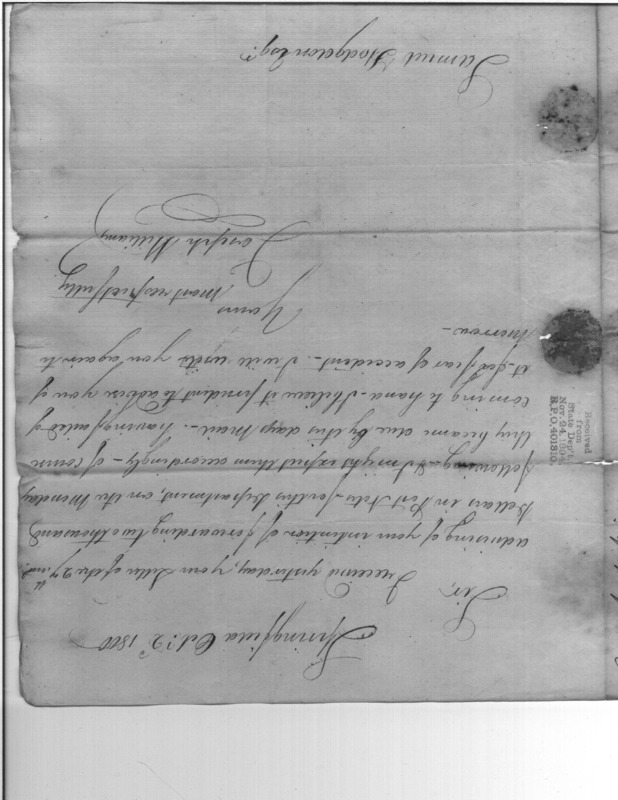 Springfield Oct. 2d 1800
Sir,
I received yesterday, your Letter of the 27th ult.
advising of your intention of forwarding two thousand
Dollars in Post Notes for this department, on the Monday
following - & I might expect them accordingly - of course
they became due by this days Mail - having failed of
coming to hand - I believe it prudent to advise you of
it for fear of accident - I will write you again to
morrow -
Yours
most respectfully
Joseph Williams
Samuel Hodgdon Esqr.
Received
from
State Dep't,
Nov. 24, 1894
R.P.O. 401310.